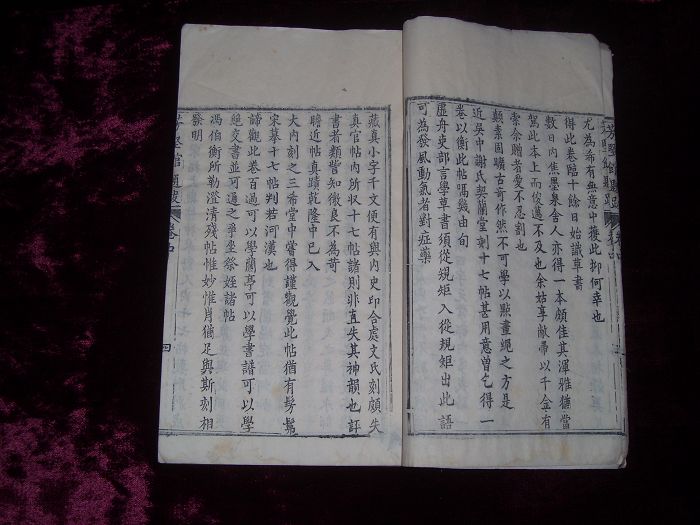 尤為希有無意中獲此抑何幸也
得此卷臨十餘日始識草書
數日內焦墨泉舍人亦得一本頗佳其渾雅猶當
駕此本上而俊邁不及也余姑享敝帚以千金有
索余贈者愛不忍割也
顛素固曠古奇作然不可學以點畫繩之方是
近吳中謝氏契蘭堂刻十七帖甚用意曾乞得一
卷以衡此帖隔幾由旬
虛舟吏部言學草書須從規矩入從規矩出此語
可為發風動氣者對症藥
藏真小字千文便有與內史印合處文氏刻頗失
真官帖內所収十七帖諸則非直失其神韻也評
書者類皆知徵良不為苛
瞻近帖真蹟乾隆中已入
大內刻之三希堂中嘗得謹觀覺此帖猶有髣髴
宋摹十七帖判若河漢也
諦觀此卷百過可以學蘭亭可以學書譜可以學
絕交書並可通之爭坐祭姪諸帖
馮伯衡所勒澄清殘帖惟妙惟肖猶足與斯刻相
發明
卷四
四